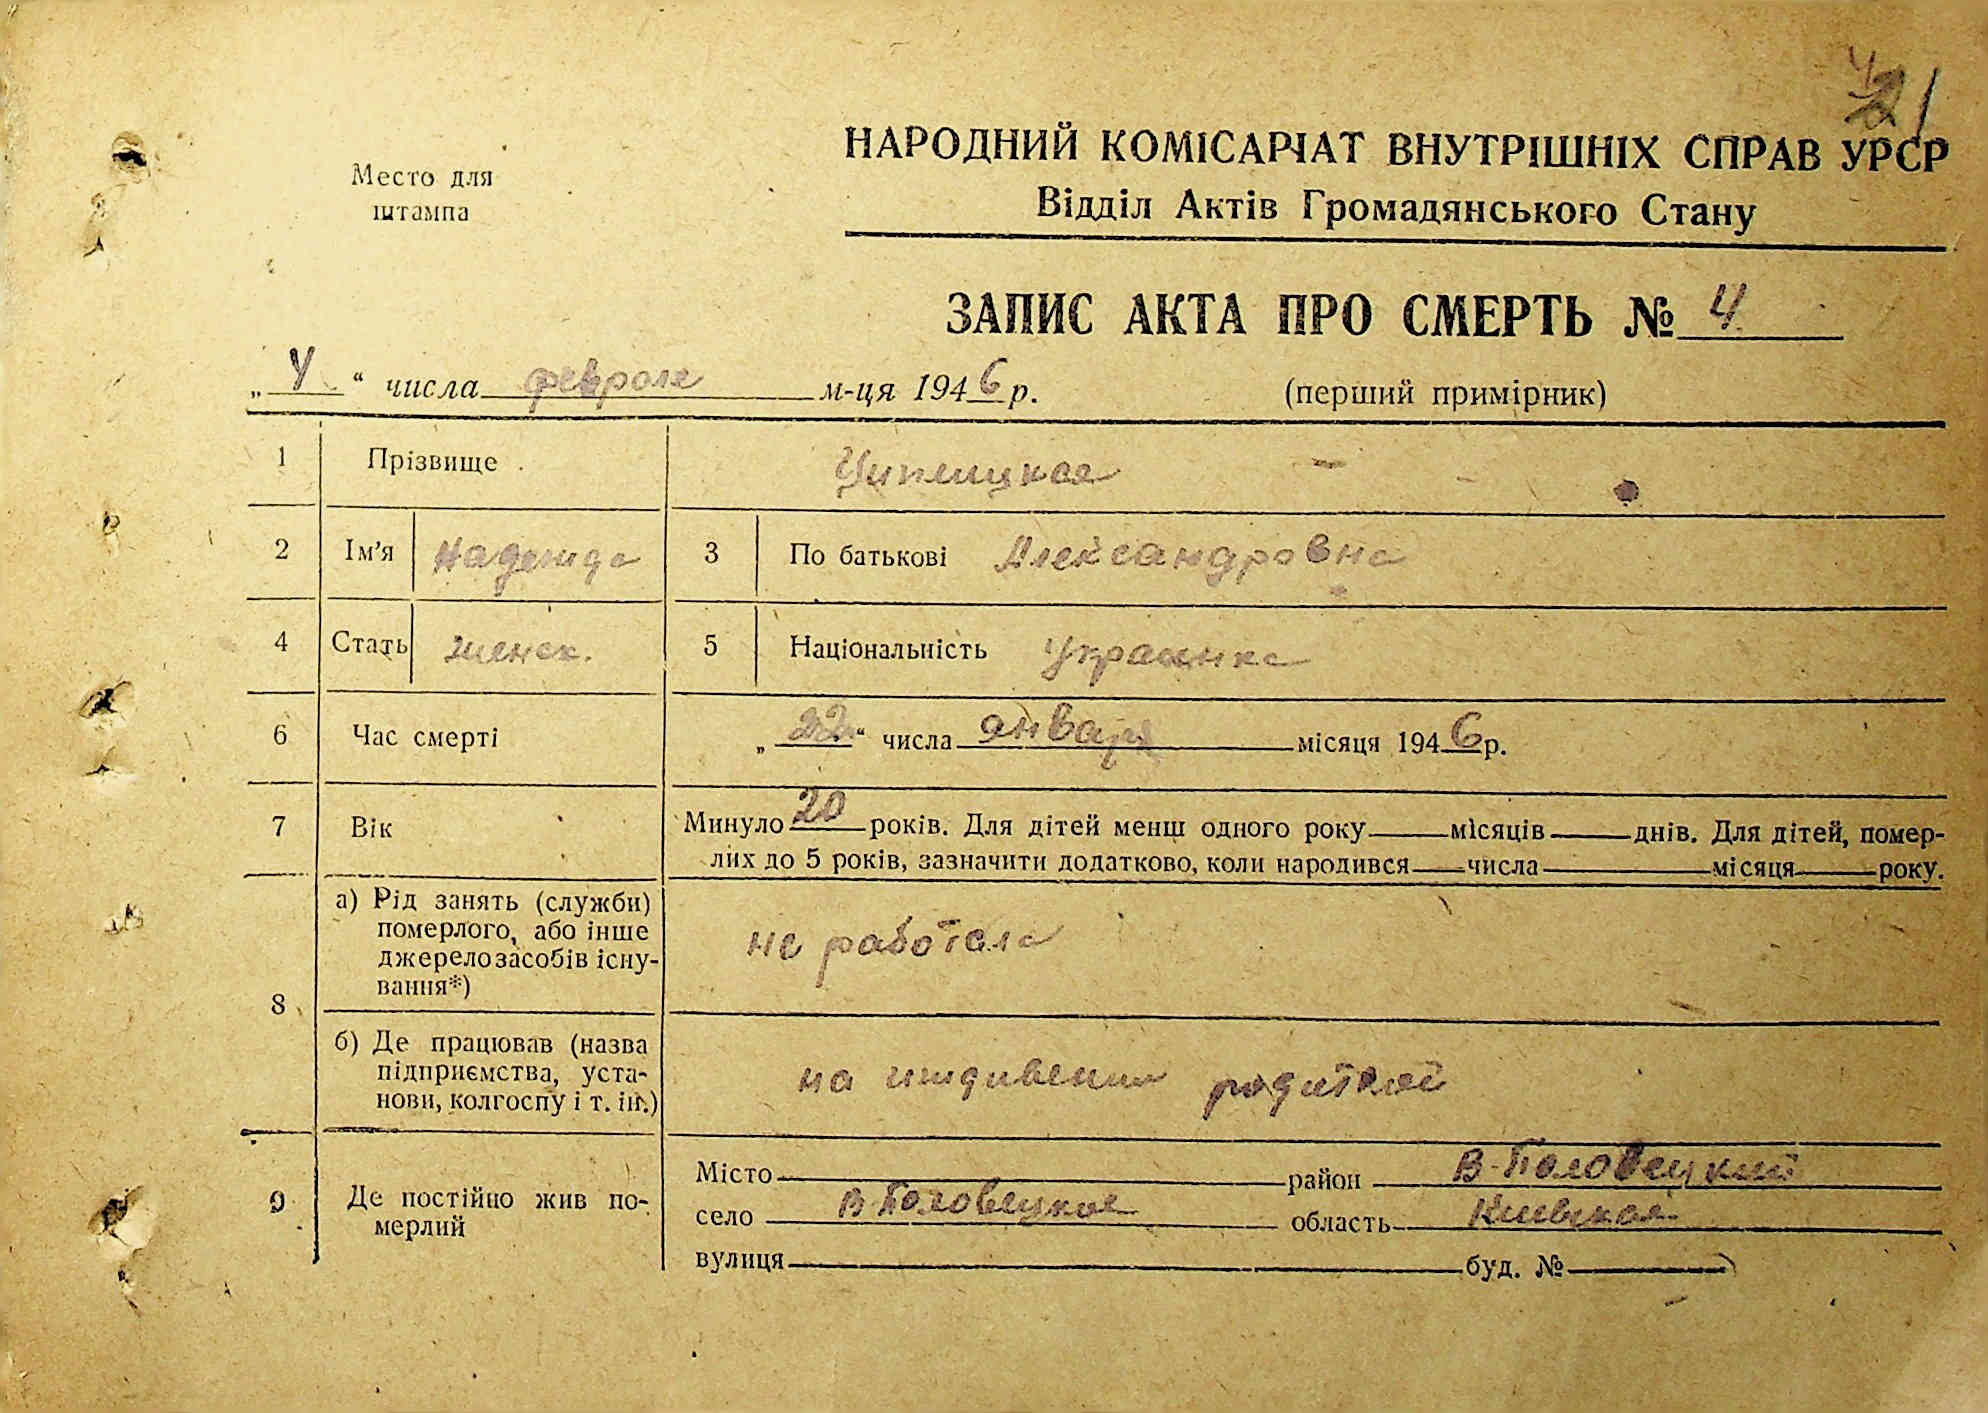 21
НАРОДНИЙ КОМІСАРІАТ ВНУТРІШНІХ СПРАВ УРСР
Место для
штампа
Відділ Актів Громадянського Стану
ЗАПИС АКТА ПРО СМЕРТЬ № 4
„ 4 “ числа февроля м-ця 1946 р.
(перший примірник)
1 Прізвище
2 Ім'я Надежда 3 По батькові Александровна
4 Стать женск. 5 Національність Украинка
6 Час смерті „ 22 “ числа января місяця 1946 р.
7 Вік Минуло 20 років. Для дітей менш одного року місяців днів. Для дітей, помер-
лих до 5 років, зазначити додатково, коли народився числа місяця року.
8 а) Рід занять (служби)
померлого, або інше
джерело засобів існу-
вання*)
не работала
б) Де працював (назва
підприємства, уста-
нови, колгоспу і т. ін.)
на иждивении родителей
9 Де постійно жив по-
мерлий
Місто район В-Половецкий
село В-Половецкое область Киевская
вулиця буд. №